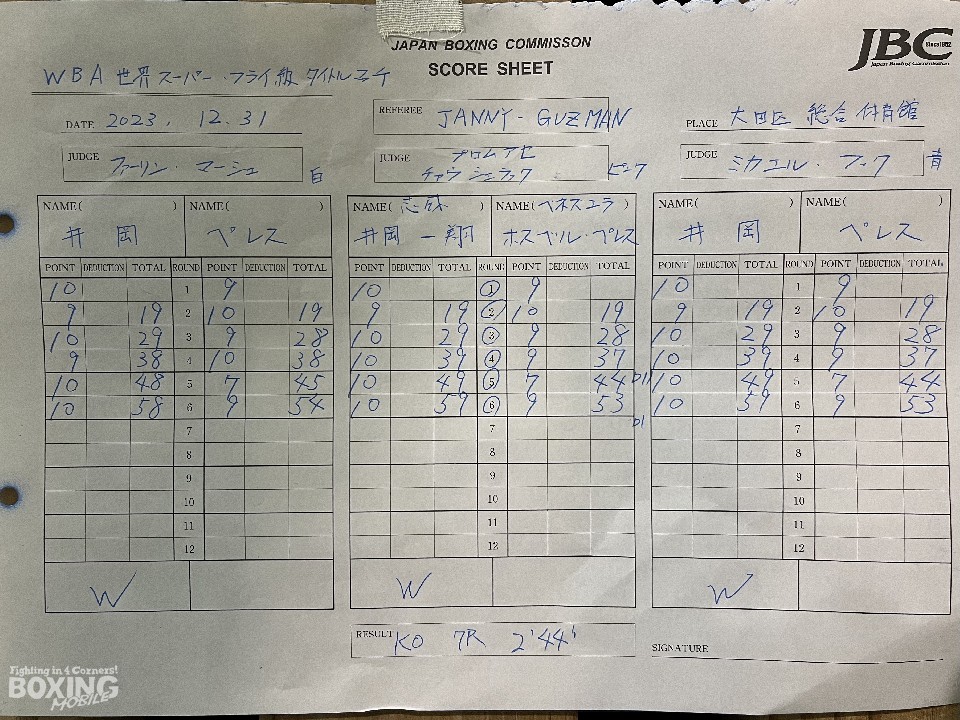 JAPAN BOXING COMMISSON
JBC
Since1952
Japan Boxing Commission
SCORE SHEET
WBA 世界スーパー・フライ級タイトルマッチ
DATE 2023. 12. 31
REFEREE JANNY-GUZMAN
PLACE 大田区総合体育館
JUDGE ファーリン・マーシュ 白
JUDGE プロムアセ
チャウシェラック ピンク
JUDGE ミカエル・フック 青
NAME( ) NAME( ) NAME(志成) NAME(ベネズエラ) NAME( ) NAME( )
井岡 ペレス 井岡一翔 ホスベル・ペレス 井岡 ペレス
POINT DEDUCTION TOTAL ROUND POINT DEDUCTION TOTAL POINT DEDUCTION TOTAL ROUND POINT DEDUCTION TOTAL POINT DEDUCTION TOTAL ROUND POINT DEDUCTION TOTAL
10 1 9 10 1 9 10 1 9
9 19 2 10 19 9 19 2 10 19 9 19 2 10 19
10 29 3 9 28 10 29 3 9 28 10 29 3 9 28
9 38 4 10 38 10 39 4 9 37 10 39 4 9 37
10 48 5 7 45 10 49 5 7 44 10 49 5 7 44
10 58 6 9 54 10 59 6 9 53 10 59 6 9 53
7 7 D1 7
8 8 8
9 9 9
10 10 10
11 11 11
12 12 12
W W W
RESULT KO 7R 2'44"
SIGNATURE
Fighting in 4 Corners!
BOXING
MOBILE